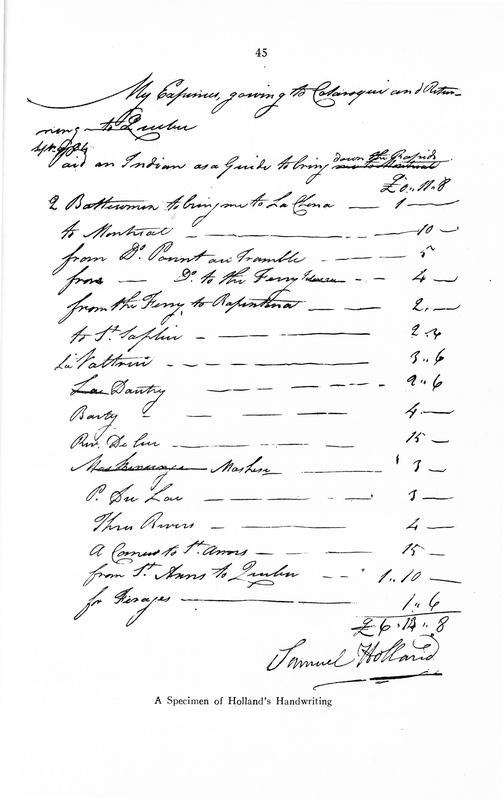 45
My Expences, gowing to Cataroqui and Retur-
ning to Quebec
Paid an Indian as a Guide to bring down the Rapids
£0..11..8
2 Battowmen to bring me to La China — 1 —
to Montreal — 10 —
from Do. Pount au Tramble — 5
from — Do. to the Ferry — 4 —
from the Ferry, to Rapentina — 2. —
to St. Saplin — 2..4
La Valtrie — 3..6
La Dautry — 2..6
Barty — 4 —
Riv. De Lue — 15 —
Maskinonge Mashese — 3 —
P. Du Lac — 3 —
Three Rivers — 4 —
A Canoe to St. Anns — 15 —
from St. Anns to Quebec — 1..10 —
for Ferages — 1..6
£6..14..8
Samuel Holland
A Specimen of Holland's Handwriting